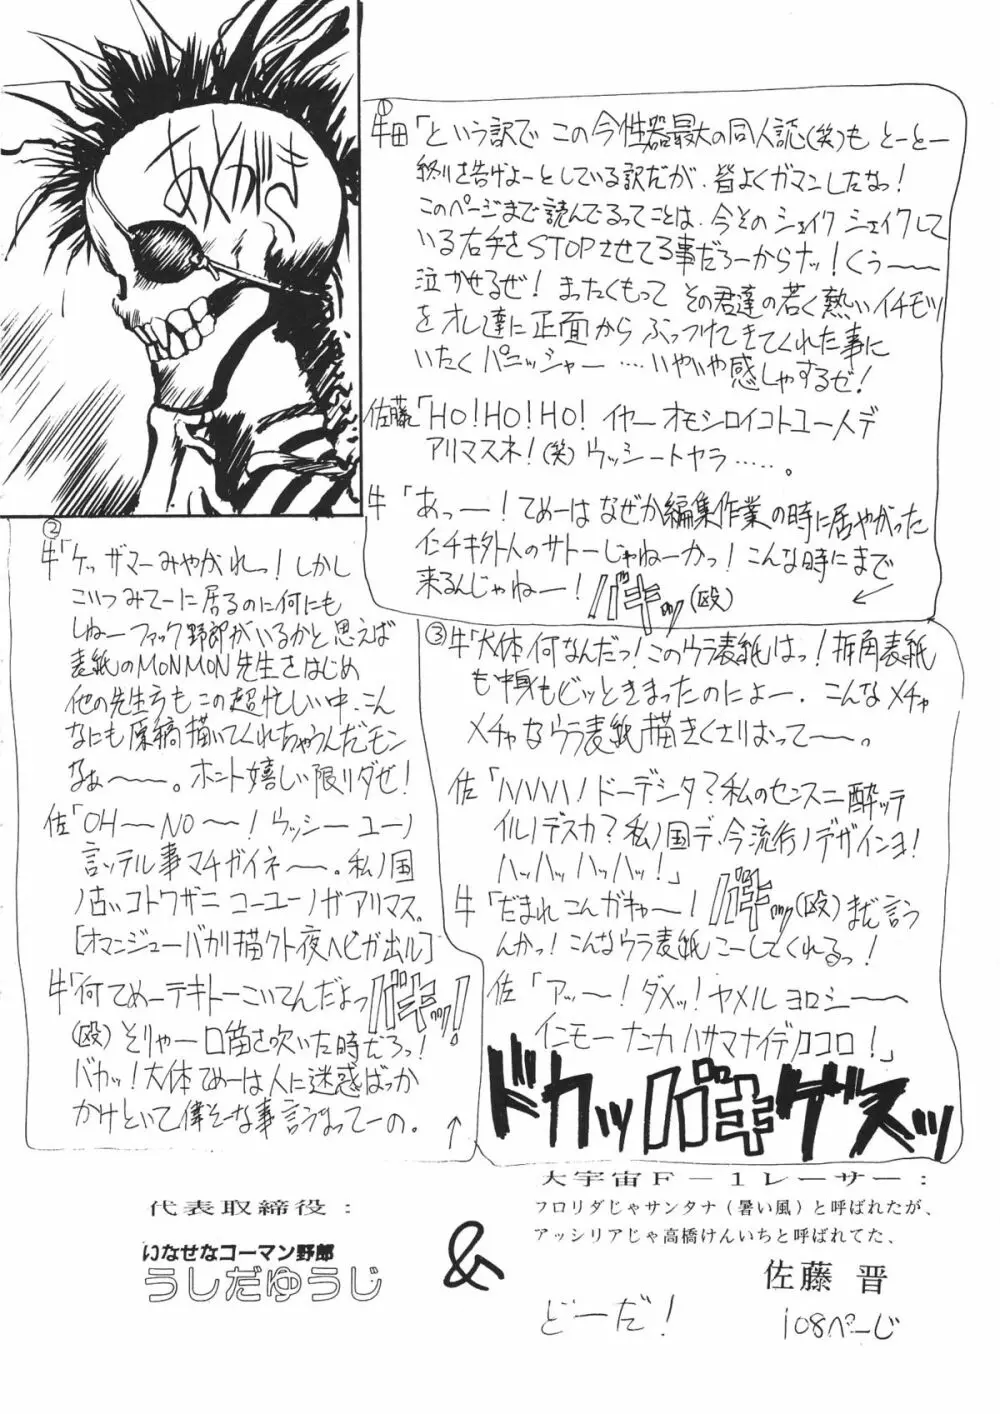 あとがき
①
牛田「という訳で この今性器最大の同人誌(笑)も とーとー
終りを告げよーとしている訳だが、皆よくガマンしたなっ!
このページまで読んでるってことは、今その シェイク シェイクして
いる右手をSTOPさせてる事だろーからナッ!くぅ〜〜
泣かせるぜ! まったくもって その君達の若く熱いイチモツ
をオレ達に正面から ぶっつけてきてくれた事に
いたく パニッシャー ‥‥ いやいや感しゃするぜ!
佐藤「HO!HO!HO! イヤーオモシロイコトユー人デ
アリマスネ!(笑) ウッシートヤラ ‥‥‥。
牛「あっ〜〜!てめーは なぜか編集作業の時に居やがった
インチキ外人のサトーじゃねーかっ!こんな時にまで
来るんじゃねー! バキッ(殴)
②
牛「ケッ ザマーみやがれっ!しかし
こいつみてーに居るのに何にも
しねーファック野郎がいるかと思えば
表紙のMONMON先生をはじめ
他の先生方も この超忙しい中、こん
なにも原稿描いてくれちゃうんだモン
なぁ〜〜。ホント嬉しい限りダゼ!
佐「OH〜NO〜!ウッシー ユーノ
言ッテル事マチガイネ〜。私ノ国
ノ古いコトワザニ コーユーノガアリマス。
[オマンジューバカリ描クト夜ヘビガ出ル]
牛「何てめーテキトーこいてんだよっ バキッ!
(殴) そりゃー口笛を吹いた時だろっ!
バカッ!大体てめーは人に迷惑ばっか
かけといて偉そーな事言うなってーの。
③
牛「大体何なんだっ!このウラ表紙はっ!折角表紙
も中身もビッときまったのによー、こんなメチャ
メチャなウラ表紙描きくさりおって〜〜。
佐「ハハハハ!ドーデシタ?私のセンスニ酔ッテ
イルノデスカ?私ノ国デ、今流行ノデザインヨ!
ハッハッ ハッハッ!」
牛「だまれこんガキゃ〜! バキッ(殴)まだ言う
んかっ!こんなウラ表紙 こーしてくれるっ!
佐「アッ〜!ダメッ!ヤメル ヨロシ〜〜
インモー ナンカ ハサマナイデノココロ!」
ドカッ バキ ゲスッ
代表取締役:
いなせなコーマン野郎
うしだゆうじ
&
大宇宙F−1レーサー:
フロリダじゃサンタナ(暑い風)と呼ばれたが、
アッシリアじゃ高橋けんいちと呼ばれてた、
佐藤 晋
どーだ!
108ページ